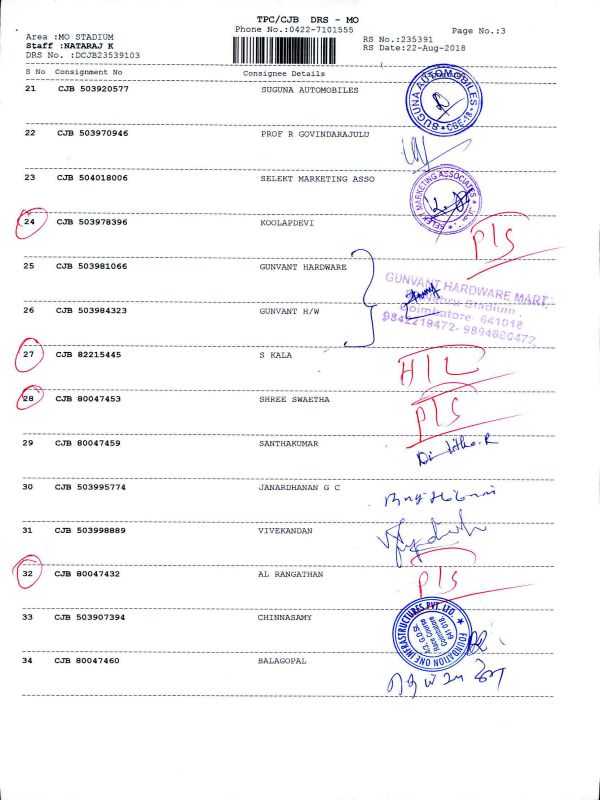 TPC/CJB DRS - MO
Phone No.:0422-7101555
Page No.:3
Area :MO STADIUM
Staff :NATARAJ K
DRS No. :DCJB23539103
RS No.:235391
RS Date:22-Aug-2018
S No Consignment No Consignee Details
21 CJB 503920577 SUGUNA AUTOMOBILES
SUGUNA AUTOMOBILES
CBE-18
22 CJB 503970946 PROF R GOVINDARAJULU
23 CJB 504018006 SELEKT MARKETING ASSO
SELEKT MARKETING ASSOCIATES
24 CJB 503978396 KOOLAPDEVI
P/S
25 CJB 503981066 GUNVANT HARDWARE
GUNVANT HARDWARE MART
Nehru Stadium,
Coimbatore- 641018
9842218472-
26 CJB 503984323 GUNVANT H/W
27 CJB 82215445 S KALA
H/L
28 CJB 80047453 SHREE SWAETHA
P/S
29 CJB 80047459 SANTHAKUMAR
30 CJB 503995774 JANARDHANAN G C
31 CJB 503998889 VIVEKANDAN
32 CJB 80047432 AL RANGATHAN
P/S
33 CJB 503907394 CHINNASAMY
FOUNDATION ONE INFRASTRUCTURES PVT. LTD.
Race Course
Coimbatore
641 018.
34 CJB 80047460 BALAGOPAL